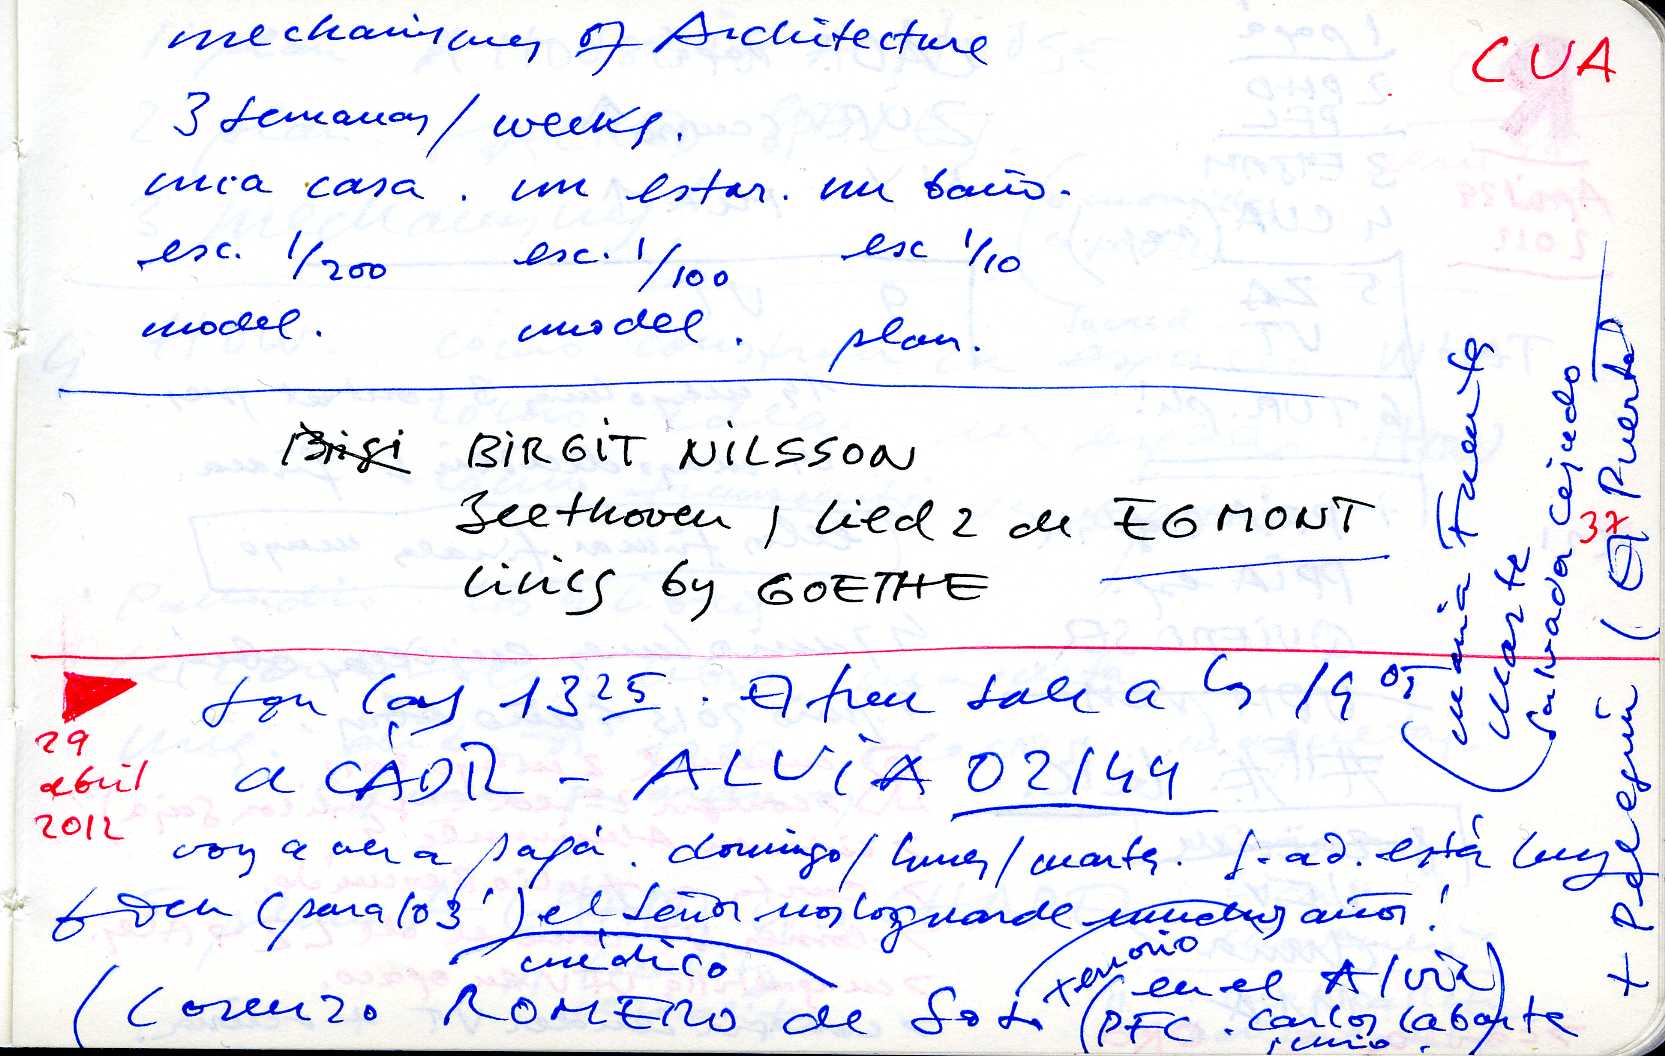 mechanisms of Architecture
CUA
3 semanas / weeks.
una casa . un estar. un baño.
esc. 1/200 esc. 1/100 esc 1/10
model. model. plan.
Birgi BIRGIT NILSSON
Beethoven / lied 2 de EGMONT
lirics by GOETHE
29 abril 2012
son las 13 25 . El tren sale a las 19 05
a CÁDIZ - ALVIA 02144
voy a ver a papá. domingo/lunes/martes. está muy
bien (para 103) el Señor nos lo guarde muchos años!
médico
(Lorenzo ROMERO de Soto
(en el Alvia)
(PFC . Carlos Labarta
(María Fuente
Marte
Salvador Cejudo
37
+ Peleguín ( El Puerto